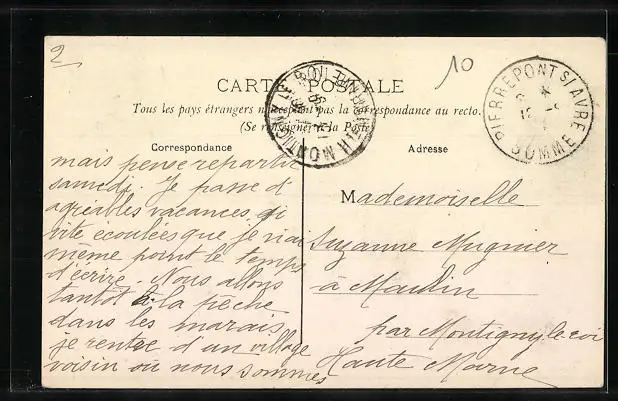 2
10
CARTE POSTALE
Tous les pays étrangers n'acceptent pas la correspondance au recto.
(Se renseigner à la Poste)
Correspondance
mais pense repartir
samedi. Je passe d'
agréables vacances, si
vite écoulées que je n'ai
même point le temps
d'écrire. Nous allons
tantôt à la pêche
dans les marais
je rentre d'un village
voisin où nous sommes
Adresse
Mademoiselle
Suzanne Mugnier
à Maulin
par Montigny le roi
Haute Marne
PIERREPONT S/ AVRE
SOMME
MONTIGNY
Hte MARNE